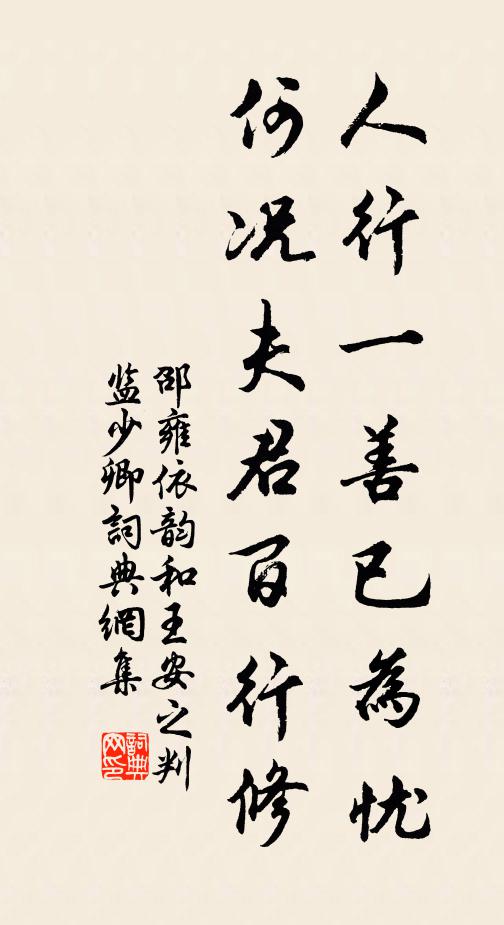 人行一善已為忧
何况夫君百行修
邵雍依韵和王安之判
监少卿詞典網集
詞典
网印